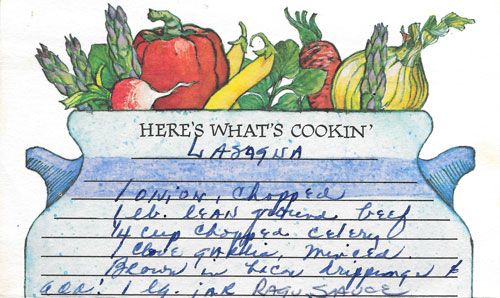 HERE'S WHAT'S COOKIN'
LASAGNA
1 ONION, Chopped
1 lb. LEAN ground beef
1/4 cup chopped celery
1 clove garlic, minced
Brown in bacon drippings &
add: 1 lg. jar RAGU SAUCE